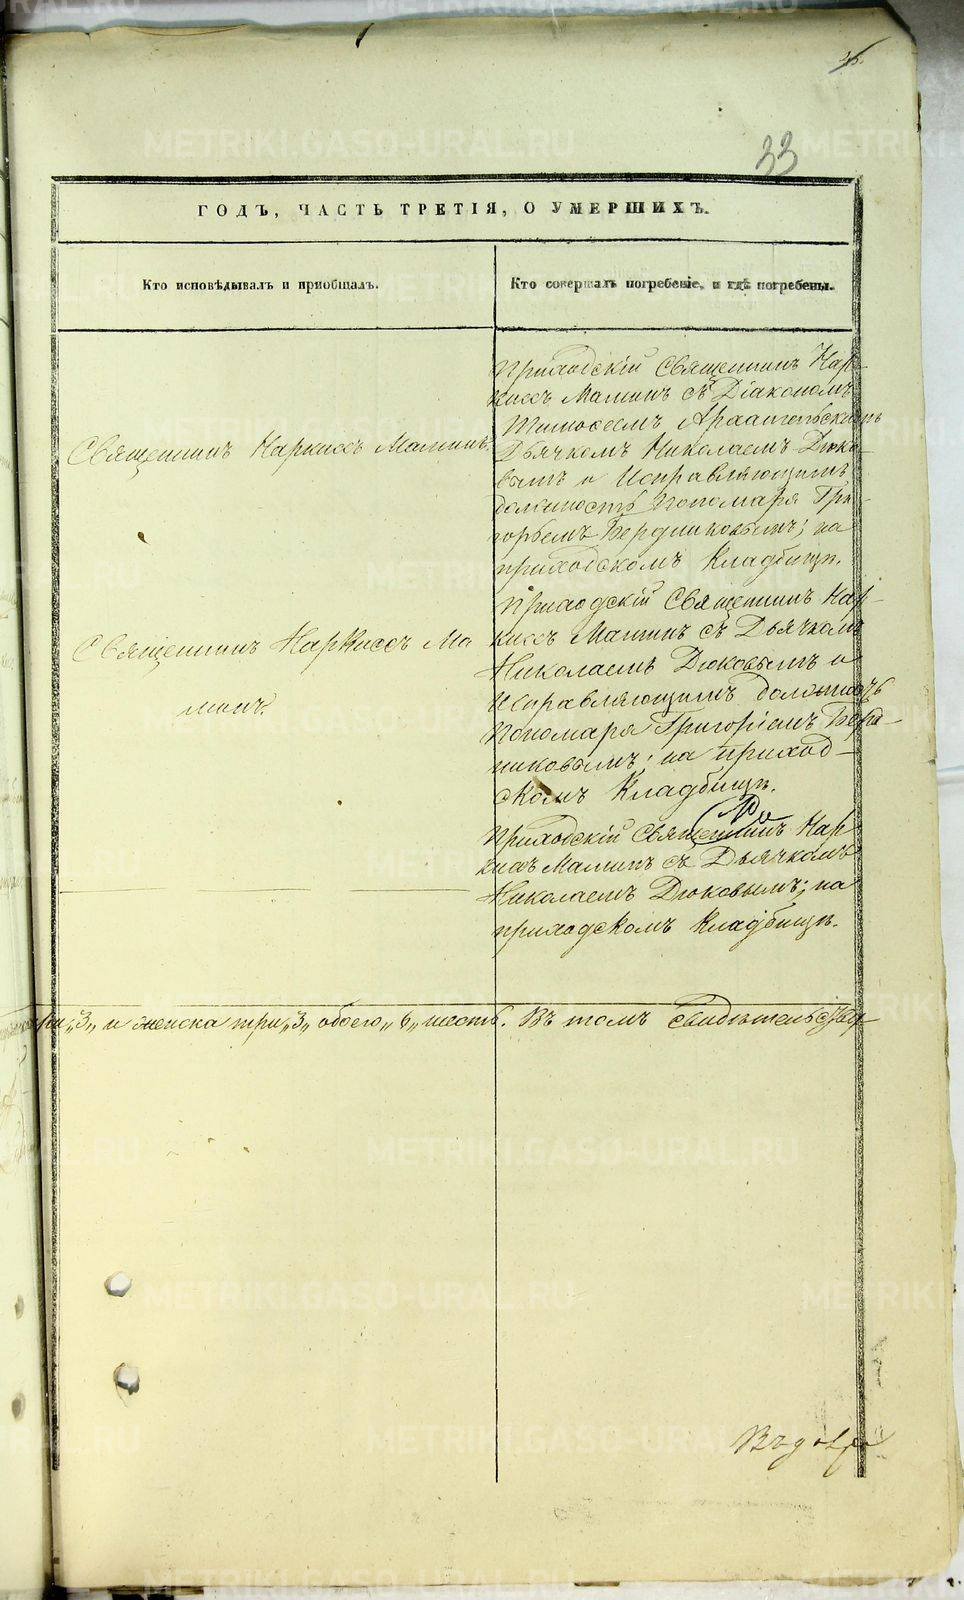 33
ГОДЪ, ЧАСТЬ ТРЕТІЯ, О УМЕРШИХЪ.
Кто исповѣдывалъ и пріобщалъ.
Кто совершалъ погребеніе, и гдѣ погребены.
Священникъ Наркиссъ Маминъ.
Приходскій Священникъ Нар-
киссъ Маминъ съ Діакономъ
Архангельскимъ
Дьячкомъ Николаемъ Дюко-
вымъ и Исправляющимъ
должность Пономаря Гри-
горьемъ Бердниковымъ; на
приходскомъ Кладбищѣ.
Священникъ Наркиссъ Ма
минъ.
Приходскій Священникъ Нар-
киссъ Маминъ съ Дьячкомъ
Николаемъ Дюковымъ и
Исправляющимъ должность
Пономаря Григоріемъ Берд-
никовымъ; на приход-
скомъ Кладбищѣ.
Приходскій Священникъ Нар-
киссъ Маминъ съ Дьячкомъ
Николаемъ Дюковымъ; на
приходскомъ Кладбищѣ.
три „3„ и женска три „3„ обоего „6„ шесть. Въ томъ свидѣтельству
METRIKI.GASO-URAL.RU